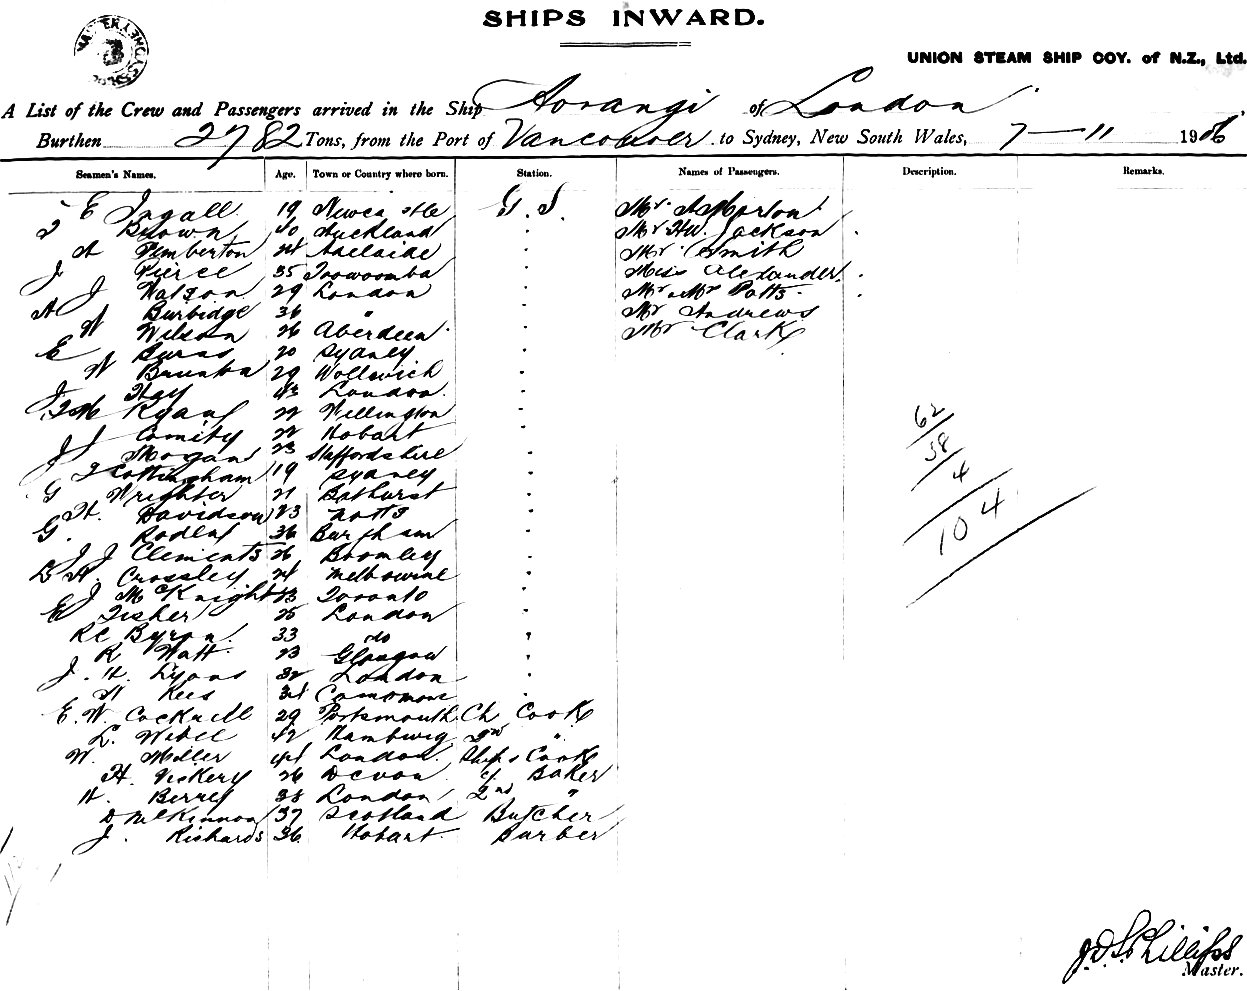 SHIPS INWARD.
UNION STEAM SHIP COY. of N.Z., Ltd.
A List of the Crew and Passengers arrived in the Ship Aorangi of London
Burthen 2782 Tons, from the Port of Vancouver to Sydney, New South Wales, 7-11 1906
Seamen's Names. Age. Town or Country where born. Station. Names of Passengers. Description. Remarks.
E Ingall 19 Newcastle G. S. Mr. A Morton
Brown 40 Auckland " Mr HW. Jackson
A Pemberton 24 Adelaide " Mr Smith
J Pierce 35 Toowoomba " Miss Alexander
J Watson 29 London " Mr & Mrs Potts
A Burbidge 36 " " Mr Andrews
W Wilson 26 Aberdeen " Mr Clark
E Burns 20 Sydney "
W 29 Woolwich "
J Hay 43 London "
J.M Ryan 22 Wellington "
J J Comity 22 Hobart "
J Mogan 23 Staffordshire "
J Cottingham 19 Sydney "
G Wrighter 21 Bathurst "
H. Davidson 23 Notts "
G. Rodley 36 "
J J Clements 26 Bromley "
H. Crossley 24 Melbourne "
J McKnight 23 Toronto "
E Fisher 25 London "
R C Byron 33 do "
R Watt 23 Glasgow "
J. H. Lyons 32 London "
W Rees 34 "
E. W. Cockrell 29 Portsmouth Ch Cook
L. Webel 42 Hamburg 2nd "
W. Miller 44 London Ships Cook
H. Vickery 26 Devon Baker
H. Berry 38 London 2nd "
D McKinnon 37 Scotland Butcher
J. Richards 36 Hobart Barber
62
38
4
104
J.D.S. Phillips
Master.